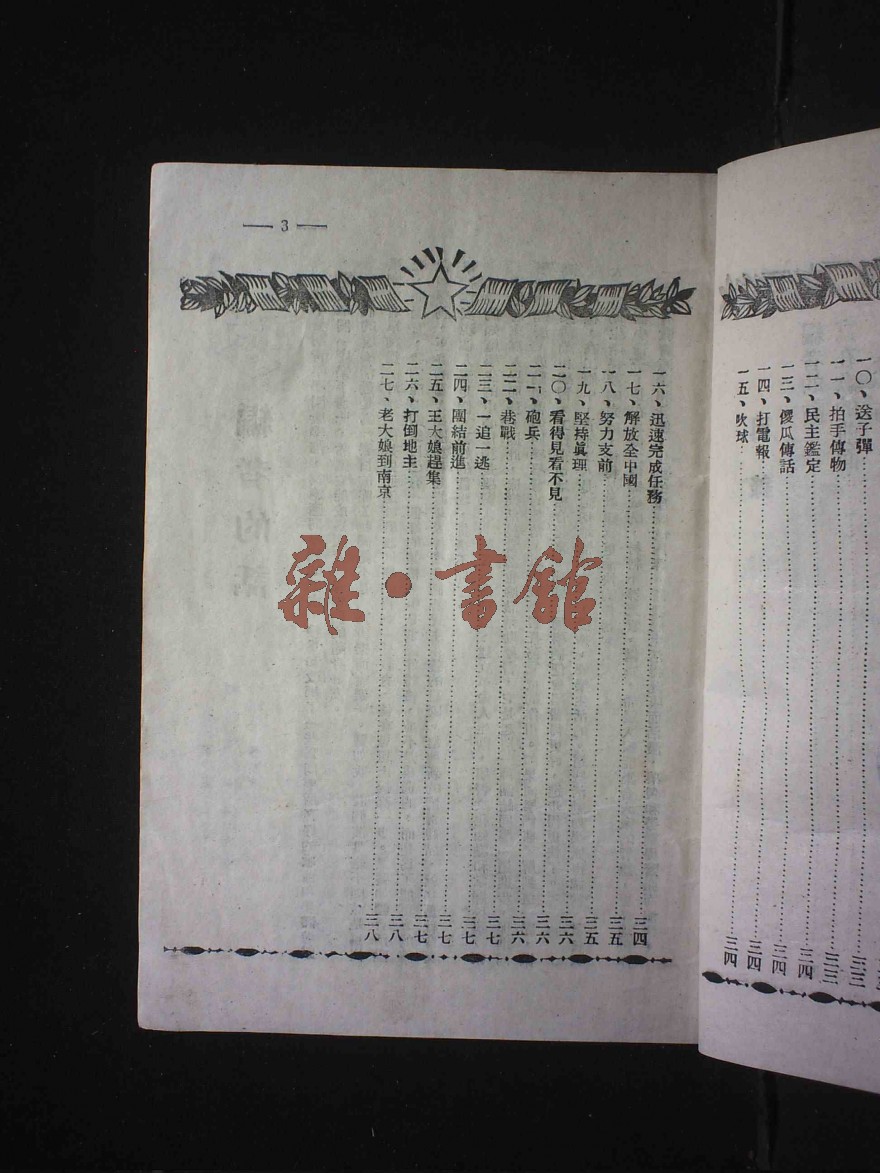 一〇、送子彈……三三
一一、拍手傳物……三三
一二、民主鑑定……三四
一三、傻瓜傳話……三四
一四、打電報……三四
一五、吹球……三四
— 3 —
一六、迅速完成任務……三四
一七、解放全中國……三五
一八、努力支前……三五
一九、堅持眞理……三六
二〇、看得見看不見……三六
二一、砲兵……三六
二二、巷戰……三七
二三、一追一逃……三七
二四、團結前進……三七
二五、王大娘趕集……三七
二六、打倒地主……三八
二七、老大娘到南京……三八
雜·書館